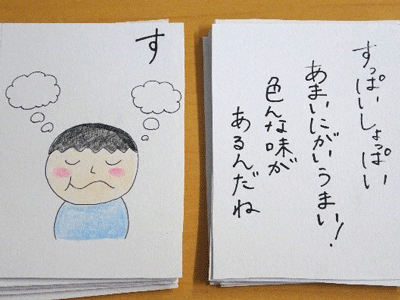 す
すっぱいしょっぱい
あまいにがいうまい!
色んな味が
あるんだね